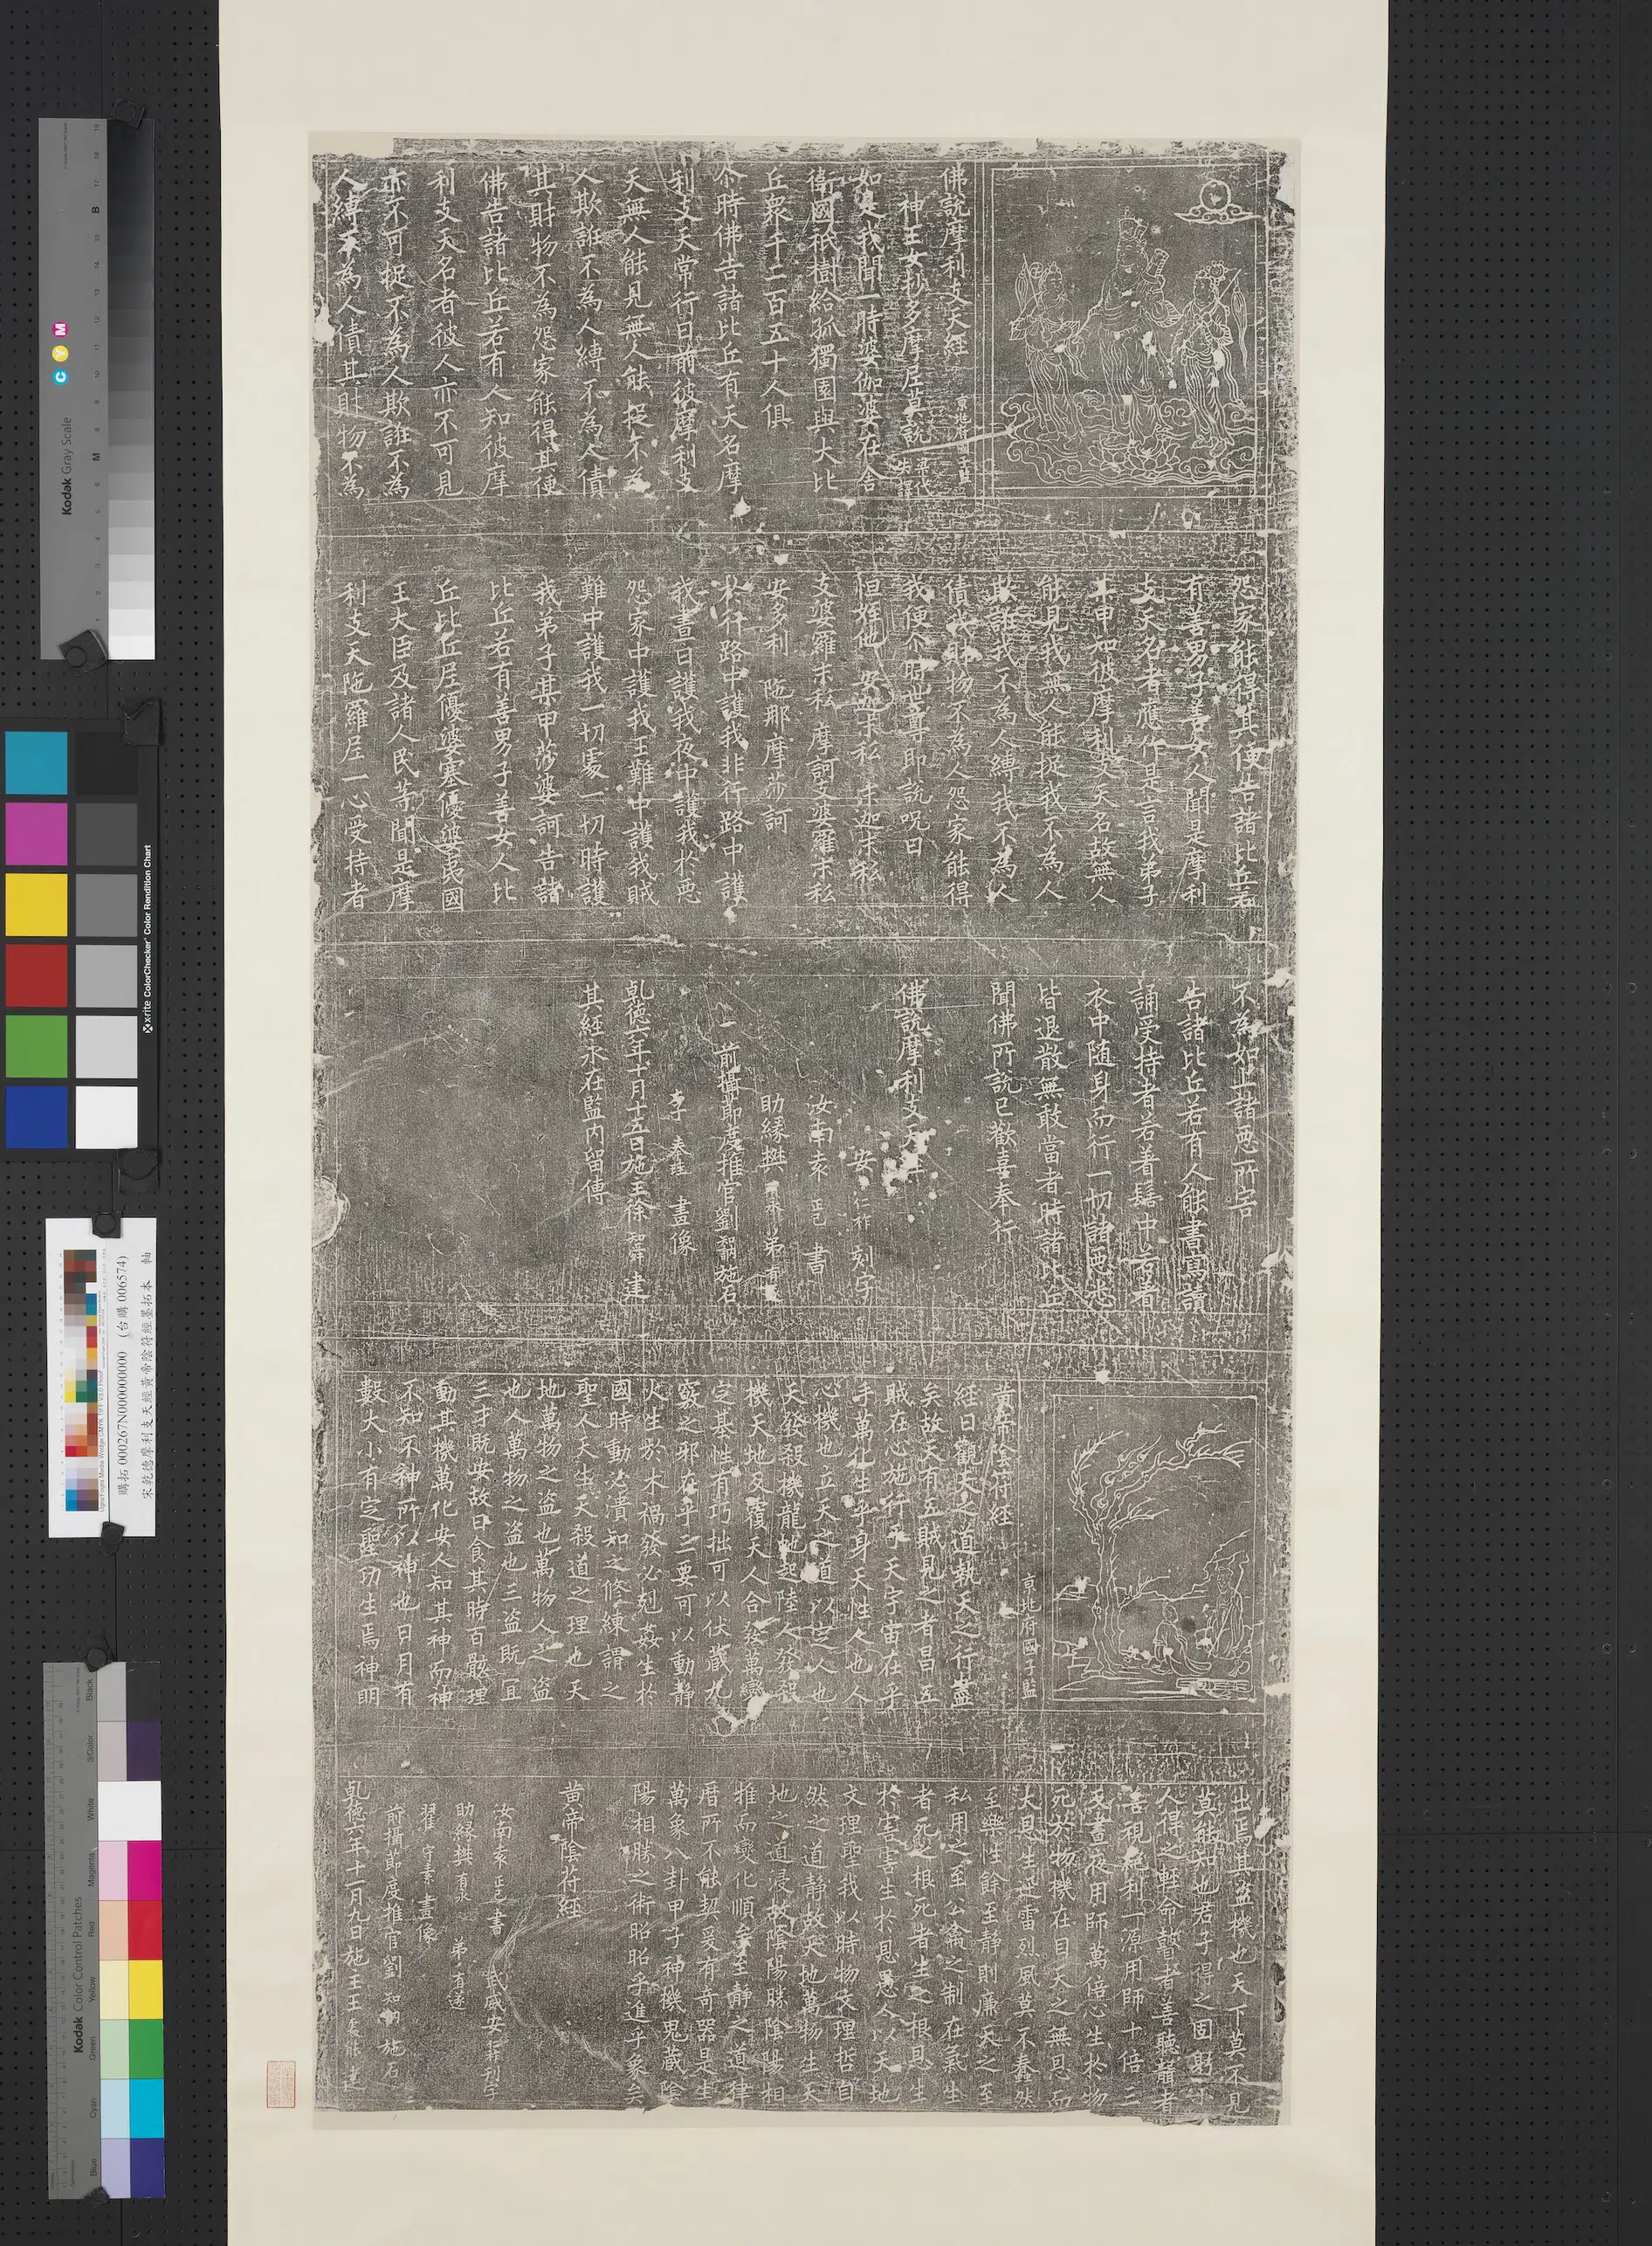 佛說摩利支天經
京兆府國子監
神王女抄多摩尼莫說
梁代失譯
如是我聞一時婆伽婆在舍
衛國祇樹給孤獨園與大比
丘眾千二百五十人俱
尒時佛告諸比丘有天名摩
利支天常行日前彼摩利支
天無人能見無人能捉不為
人欺誑不為人縛不為人債
其財物不為怨家能得其便
佛告諸比丘若有人知彼摩
利支天名者彼人亦不可見
亦不可捉不為人欺誑不為
人縛不為人債其財物不為
怨家能得其便告諸比丘若
有善男子善女人聞是摩利
支天名者應作是言我弟子
某甲知彼摩利支天名故無人
能見我無人能捉我不為人
欺誑我不為人縛我不為人
債我財物不為人怨家能得
我便尒時世尊即說呪曰
怛姪他 安迦末私 末迦末私
支婆羅末私 摩訶支婆羅末私
安多利 陁那摩莎訶
於行路中護我非行路中護
我晝日護我夜中護我於惡
怨家中護我王難中護我賊
難中護我一切處一切時護
我弟子某甲莎婆訶告諸
比丘若有善男子善女人比
丘比丘尼優婆塞優婆夷國
王大臣及諸人民等聞是摩
利支天陁羅尼一心受持者
不為如上諸惡所害
告諸比丘若有人能書寫讀
誦受持者若著髻中若著
衣中随身而行一切諸惡悉
皆退散無敢當者時諸比丘
聞佛所說已歡喜奉行
佛說摩利支天經
安仁祚 刻字
汝南袁正己 書
助緣樊有永弟有遂
前攝節度推官劉知訥施石
李奉珪 畫像
乹德六年十月十五日施主徐知舜建
其經永在監內留傳
黃帝陰符經
京兆府國子監
經曰觀天之道執天之行盡
矣故天有五賊見之者昌五
賊在心施行乎天宇宙在乎
手萬化生乎身天性人也人
心機也立天之道以定人也
天發殺機龍虵起陸人發殺
機天地反覆天人合發萬變
之基性有巧拙可以伏藏九
竅之邪在乎三要可以動靜
火生於木禍發必剋姦生於
國時動必潰知之修練謂之
聖人天生天殺道之理也天
地萬物之盜也萬物人之盜
也人萬物之盜也三盜既冝
三才既安故曰食其時百骸理
動其機萬化安人知其神而神
不知不神所以神也日月有
數大小有定聖功生焉神明
出焉其盜機也天下莫不見
莫能知也君子得之固躬小
人得之輕命瞽者善聽聾者
善視絕利一源用師十倍三
反晝夜用師萬倍心生於物
死於物機在目天之無恩而
大恩生迅雷烈風莫不蠢然
至樂性餘至靜則廉天之至
私用之至公禽之制在氣生
者死之根死者生之根恩生
於害害生於恩愚人以天地
文理聖我以時物文理哲自
然之道靜故天地萬物生天
地之道浸故陰陽勝陰陽相
推而變化順矣至靜之道律
曆所不能契爰有奇器是生
萬象八卦甲子神機鬼藏陰
陽相勝之術昭昭乎進乎象矣
黃帝陰符經
汝南袁正己書 武威安仁祚刊字
助緣樊有永 弟有遂
翟守素畫像
前攝節度推官劉知訥施石
乹德六年十一月九日施主王 能建
購拓 000267N000000000 (台購 006574)
宋乾德摩利支天經黃帝陰符經墨拓本 軸
Kodak Gray Scale
C Y M
x-rite ColorChecker Color Rendition Chart
Kodak Color Control Patches
Blue
Cyan
Green
Yellow
Red
Magenta
White
3/Color
Black